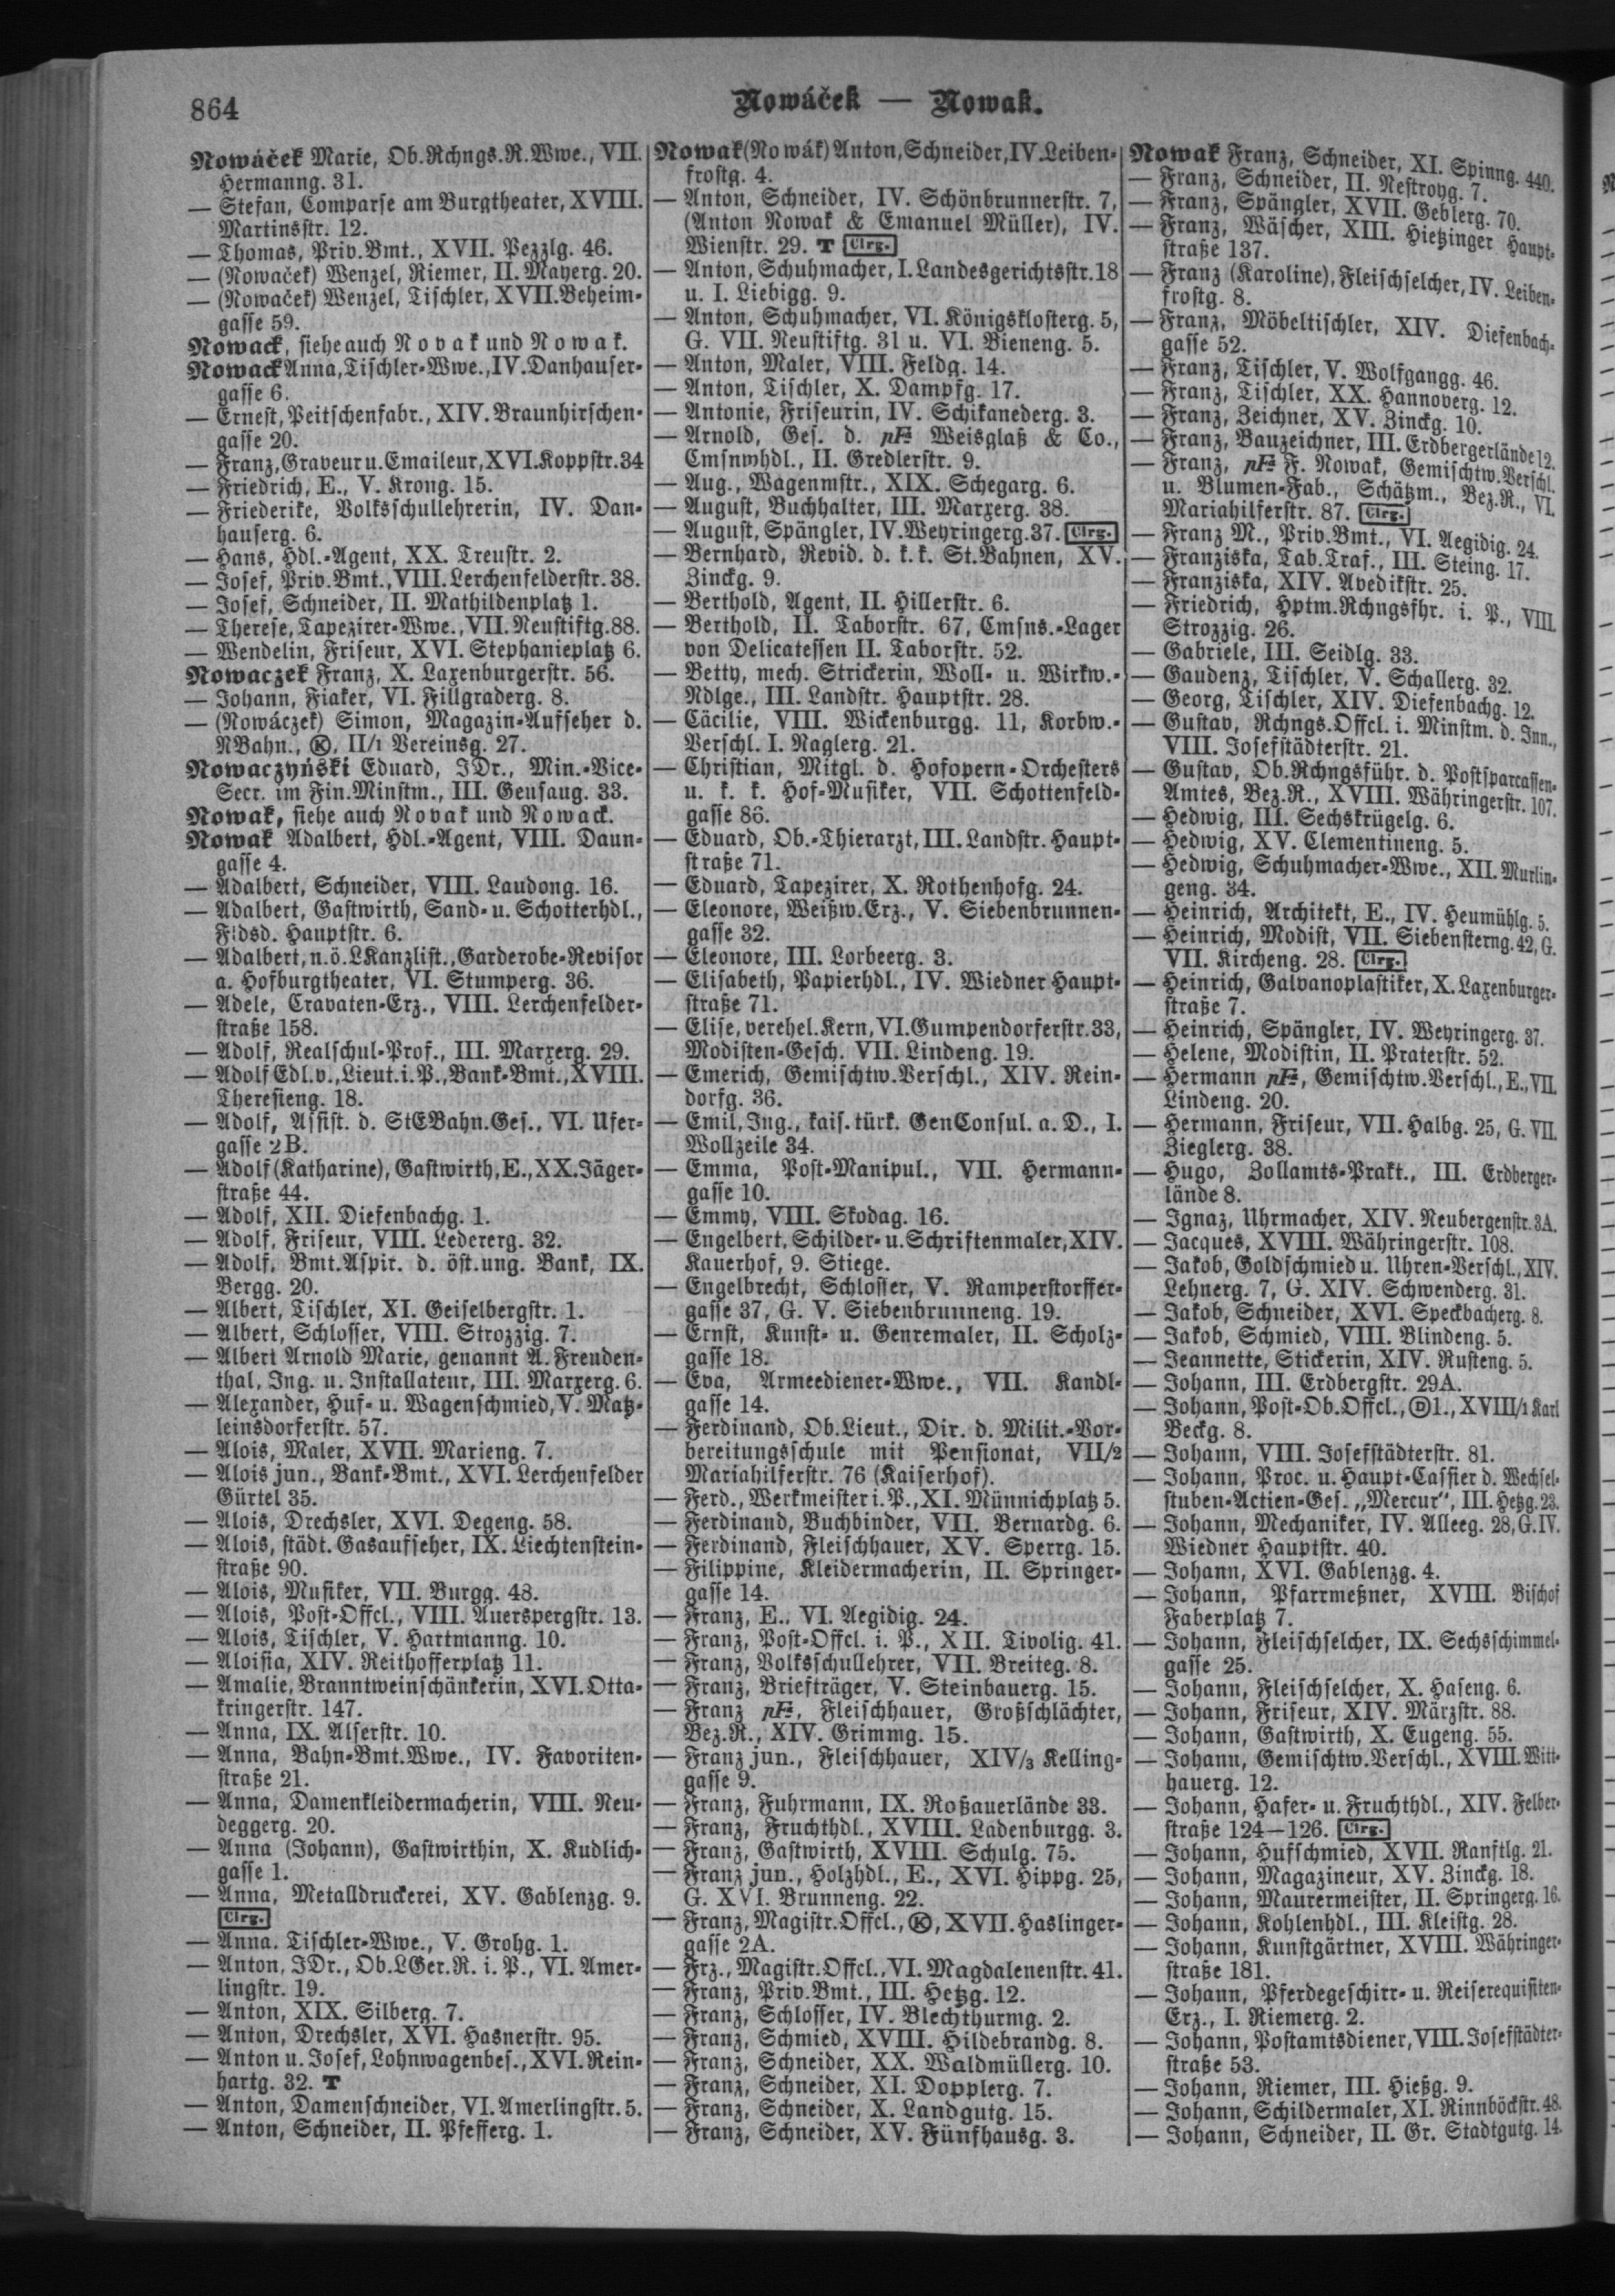 864
Nowáček — Nowak.
Nowáček Marie, Ob.Rchngs.R.Wwe., VII.
Hermanng. 31.
— Stefan, Comparse am Burgtheater, XVIII.
Martinsstr. 12.
— Thomas, Priv.Bmt., XVII. Pezzlg. 46.
— (Nowaček) Wenzel, Riemer, II. Mayerg. 20.
— (Nowaček) Wenzel, Tischler, XVII. Beheim-
gasse 59.
Nowack, siehe auch Novak und Nowak.
Nowack Anna, Tischler-Wwe., IV. Danhauser-
gasse 6.
— Ernest, Peitschenfabr., XIV. Braunhirschen-
gasse 20.
— Franz, Graveur u. Emaileur, XVI. Koppstr. 34
— Friedrich, E., V. Krong. 15.
— Friederike, Volksschullehrerin, IV. Dan-
hauserg. 6.
— Hans, Hdl.-Agent, XX. Treustr. 2.
— Josef, Priv.Bmt., VIII. Lerchenfelderstr. 38.
— Josef, Schneider, II. Mathildenplatz 1.
— Therese, Tapezirer-Wwe., VII. Neustiftg. 88.
— Wendelin, Friseur, XVI. Stephanieplatz 6.
Nowaczek Franz, X. Laxenburgerstr. 56.
— Johann, Fiaker, VI. Fillgraderg. 8.
— (Nowáczek) Simon, Magazin-Aufseher d.
NBahn., Ⓚ, II/1 Vereinsg. 27.
Nowaczyński Eduard, JDr., Min.-Vice-
Secr. im Fin.Minstm., III. Geusaug. 33.
Nowak, siehe auch Novak und Nowack.
Nowak Adalbert, Hdl.-Agent, VIII. Daun-
gasse 4.
— Adalbert, Schneider, VIII. Laudong. 16.
— Adalbert, Gastwirth, Sand- u. Schotterhdl.,
Fldsd. Hauptstr. 6.
— Adalbert, n.ö.LKanzlist., Garderobe-Revisor
a. Hofburgtheater, VI. Stumperg. 36.
— Adele, Cravaten-Erz., VIII. Lerchenfelder-
straße 158.
— Adolf, Realschul-Prof., III. Marxerg. 29.
— Adolf Edl.v., Lieut.i.P., Bank-Bmt., XVIII.
Theresieng. 18.
— Adolf, Assist. d. StEBahn.Ges., VI. Ufer-
gasse 2B.
— Adolf (Katharine), Gastwirth, E., XX. Jäger-
straße 44.
— Adolf, XII. Diefenbachg. 1.
— Adolf, Friseur, VIII. Ledererg. 32.
— Adolf, Bmt.Aspir. d. öst.ung. Bank, IX.
Bergg. 20.
— Albert, Tischler, XI. Geiselbergstr. 1.
— Albert, Schlosser, VIII. Strozzig. 7.
— Albert Arnold Marie, genannt A. Freuden-
thal, Ing. u. Installateur, III. Marxerg. 6.
— Alexander, Huf- u. Wagenschmied, V. Matz-
leinsdorferstr. 57.
— Alois, Maler, XVII. Marieng. 7.
— Alois jun., Bank-Bmt., XVI. Lerchenfelder
Gürtel 35.
— Alois, Drechsler, XVI. Degeng. 58.
— Alois, städt. Gasaufseher, IX. Liechtenstein-
straße 90.
— Alois, Musiker, VII. Burgg. 48.
— Alois, Post-Offcl., VIII. Auerspergstr. 13.
— Alois, Tischler, V. Hartmanng. 10.
— Aloisia, XIV. Reithofferplatz 11.
— Amalie, Branntweinschänkerin, XVI. Otta-
kringerstr. 147.
— Anna, IX. Alserstr. 10.
— Anna, Bahn-Bmt.Wwe., IV. Favoriten-
straße 21.
— Anna, Damenkleidermacherin, VIII. Neu-
deggerg. 20.
— Anna (Johann), Gastwirthin, X. Kudlich-
gasse 1.
— Anna, Metalldruckerei, XV. Gablenzg. 9.
Clrg.
— Anna. Tischler-Wwe., V. Grohg. 1.
— Anton, JDr., Ob.LGer.R. i. P., VI. Amer-
lingstr. 19.
— Anton, XIX. Silberg. 7.
— Anton, Drechsler, XVI. Hasnerstr. 95.
— Anton u. Josef, Lohnwagenbes., XVI. Rein-
hartg. 32. T
— Anton, Damenschneider, VI. Amerlingstr. 5.
— Anton, Schneider, II. Pfefferg. 1.
Nowak (Nowák) Anton, Schneider, IV. Leiben-
frostg. 4.
— Anton, Schneider, IV. Schönbrunnerstr. 7,
(Anton Nowak & Emanuel Müller), IV.
Wienstr. 29. T Clrg.
— Anton, Schuhmacher, I. Landesgerichtsstr. 18
u. I. Liebigg. 9.
— Anton, Schuhmacher, VI. Königsklosterg. 5,
G. VII. Neustiftg. 31 u. VI. Bieneng. 5.
— Anton, Maler, VIII. Feldg. 14.
— Anton, Tischler, X. Dampfg. 17.
— Antonie, Friseurin, IV. Schikanederg. 3.
— Arnold, Ges. d. pFa Weisglaß & Co.,
Cmsnwhdl., II. Gredlerstr. 9.
— Aug., Wagenmstr., XIX. Schegarg. 6.
— August, Buchhalter, III. Marxerg. 38.
— August, Spängler, IV. Weyringerg. 37. Clrg.
— Bernhard, Revid. d. k. k. St.Bahnen, XV.
Zinckg. 9.
— Berthold, Agent, II. Hillerstr. 6.
— Berthold, II. Taborstr. 67, Cmsns.-Lager
von Delicatessen II. Taborstr. 52.
— Betty, mech. Strickerin, Woll- u. Wirkw.-
Ndlge., III. Landstr. Hauptstr. 28.
— Cäcilie, VIII. Wickenburgg. 11, Korbw.-
Verschl. I. Naglerg. 21.
— Christian, Mitgl. d. Hofopern-Orchesters
u. k. k. Hof-Musiker, VII. Schottenfeld-
gasse 86.
— Eduard, Ob.-Thierarzt, III. Landstr. Haupt-
straße 71.
— Eduard, Tapezirer, X. Rothenhofg. 24.
— Eleonore, Weißw.Erz., V. Siebenbrunnen-
gasse 32.
— Eleonore, III. Lorbeerg. 3.
— Elisabeth, Papierhdl., IV. Wiedner Haupt-
straße 71.
— Elise, verehel. Kern, VI. Gumpendorferstr. 33,
Modisten-Gesch. VII. Lindeng. 19.
— Emerich, Gemischtw.Verschl., XIV. Rein-
dorfg. 36.
— Emil, Ing., kais. türk. GenConsul. a. D., I.
Wollzeile 34.
— Emma, Post-Manipul., VII. Hermann-
gasse 10.
— Emmy, VIII. Skodag. 16.
— Engelbert, Schilder- u. Schriftenmaler, XIV.
Kauerhof, 9. Stiege.
— Engelbrecht, Schlosser, V. Ramperstorffer-
gasse 37, G. V. Siebenbrunneng. 19.
— Ernst, Kunst- u. Genremaler, II. Scholz-
gasse 18.
— Eva, Armeediener-Wwe., VII. Kandl-
gasse 14.
— Ferdinand, Ob.Lieut., Dir. d. Milit.-Vor-
bereitungsschule mit Pensionat, VII/2
Mariahilferstr. 76 (Kaiserhof).
— Ferd., Werkmeister i. P., XI. Münnichplatz 5.
— Ferdinand, Buchbinder, VII. Bernardg. 6.
— Ferdinand, Fleischhauer, XV. Sperrg. 15.
— Filippine, Kleidermacherin, II. Springer-
gasse 14.
— Franz, E., VI. Aegidig. 24.
— Franz, Post-Offcl. i. P., XII. Tivolig. 41.
— Franz, Volksschullehrer, VII. Breiteg. 8.
— Franz, Briefträger, V. Steinbauerg. 15.
— Franz pFa, Fleischhauer, Großschlächter,
Bez.R., XIV. Grimmg. 15.
— Franz jun., Fleischhauer, XIV/3 Kelling-
gasse 9.
— Franz, Fuhrmann, IX. Roßauerlände 33.
— Franz, Fruchthdl., XVIII. Ladenburgg. 3.
— Franz, Gastwirth, XVIII. Schulg. 75.
— Franz jun., Holzhdl., E., XVI. Hippg. 25,
G. XVI. Brunneng. 22.
— Franz, Magistr.Offcl., Ⓚ, XVII. Haslinger-
gasse 2A.
— Frz., Magistr.Offcl., VI. Magdalenenstr. 41.
— Franz, Priv.Bmt., III. Hetzg. 12.
— Franz, Schlosser, IV. Blechthurmg. 2.
— Franz, Schmied, XVIII. Hildebrandg. 8.
— Franz, Schneider, XX. Waldmüllerg. 10.
— Franz, Schneider, XI. Dopplerg. 7.
— Franz, Schneider, X. Landgutg. 15.
— Franz, Schneider, XV. Fünfhausg. 3.
Nowak Franz, Schneider, XI. Spinng. 440.
— Franz, Schneider, II. Nestroyg. 7.
— Franz, Spängler, XVII. Geblerg. 70.
— Franz, Wäscher, XIII. Hietzinger Haupt-
straße 137.
— Franz (Karoline), Fleischselcher, IV. Leiben-
frostg. 8.
— Franz, Möbeltischler, XIV. Diefenbach-
gasse 52.
— Franz, Tischler, V. Wolfgangg. 46.
— Franz, Tischler, XX. Hannoverg. 12.
— Franz, Zeichner, XV. Zinckg. 10.
— Franz, Bauzeichner, III. Erdbergerlände 12.
— Franz, pFa F. Nowak, Gemischtw.Verschl.
u. Blumen-Fab., Schätzm., Bez.R., VI.
Mariahilferstr. 87. Clrg.
— Franz M., Priv.Bmt., VI. Aegidig. 24.
— Franziska, Tab.Traf., III. Steing. 17.
— Franziska, XIV. Avedikstr. 25.
— Friedrich, Hptm.Rchngsfhr. i. P., VIII.
Strozzig. 26.
— Gabriele, III. Seidlg. 33.
— Gaudenz, Tischler, V. Schallerg. 32.
— Georg, Tischler, XIV. Diefenbachg. 12.
— Gustav, Rchngs.Offcl. i. Minstm. d. Inn.,
VIII. Josefstädterstr. 21.
— Gustav, Ob.Rchngsführ. d. Postsparcassen-
Amtes, Bez.R., XVIII. Währingerstr. 107.
— Hedwig, III. Sechskrügelg. 6.
— Hedwig, XV. Clementineng. 5.
— Hedwig, Schuhmacher-Wwe., XII. Murlin-
geng. 34.
— Heinrich, Architekt, E., IV. Heumühlg. 5.
— Heinrich, Modist, VII. Siebensterng. 42, G.
VII. Kircheng. 28. Clrg.
— Heinrich, Galvanoplastiker, X. Laxenburger-
straße 7.
— Heinrich, Spängler, IV. Weyringerg. 37.
— Helene, Modistin, II. Praterstr. 52.
— Hermann pFa, Gemischtw.Verschl., E., VII.
Lindeng. 20.
— Hermann, Friseur, VII. Halbg. 25, G. VII.
Zieglerg. 38.
— Hugo, Zollamts-Prakt., III. Erdberger-
lände 8.
— Ignaz, Uhrmacher, XIV. Neubergenstr. 3A.
— Jacques, XVIII. Währingerstr. 108.
— Jakob, Goldschmied u. Uhren-Verschl., XIV.
Lehnerg. 7, G. XIV. Schwenderg. 31.
— Jakob, Schneider, XVI. Speckbacherg. 8.
— Jakob, Schmied, VIII. Blindeng. 5.
— Jeannette, Stickerin, XIV. Rusteng. 5.
— Johann, III. Erdbergstr. 29A.
— Johann, Post-Ob.Offcl., Ⓓ1., XVIII/1 Karl
Beckg. 8.
— Johann, VIII. Josefstädterstr. 81.
— Johann, Proc. u. Haupt-Cassier d. Wechsel-
stuben-Actien-Ges. „Mercur“, III. Hetzg. 23.
— Johann, Mechaniker, IV. Alleeg. 28, G. IV.
Wiedner Hauptstr. 40.
— Johann, XVI. Gablenzg. 4.
— Johann, Pfarrmeßner, XVIII. Bischof
Faberplatz 7.
— Johann, Fleischselcher, IX. Sechsschimmel-
gasse 25.
— Johann, Fleischselcher, X. Haseng. 6.
— Johann, Friseur, XIV. Märzstr. 88.
— Johann, Gastwirth, X. Eugeng. 55.
— Johann, Gemischtw.Verschl., XVIII. Witt-
hauerg. 12.
— Johann, Hafer- u. Fruchthdl., XIV. Felber-
straße 124—126. Clrg.
— Johann, Hufschmied, XVII. Ranftlg. 21.
— Johann, Magazineur, XV. Zinckg. 18.
— Johann, Maurermeister, II. Springerg. 16.
— Johann, Kohlenhdl., III. Kleistg. 28.
— Johann, Kunstgärtner, XVIII. Währinger-
straße 181.
— Johann, Pferdegeschirr- u. Reiserequisiten-
Erz., I. Riemerg. 2.
— Johann, Postamtsdiener, VIII. Josefstädter-
straße 53.
— Johann, Riemer, III. Hießg. 9.
— Johann, Schildermaler, XI. Rinnböckstr. 48.
— Johann, Schneider, II. Gr. Stadtgutg. 14.